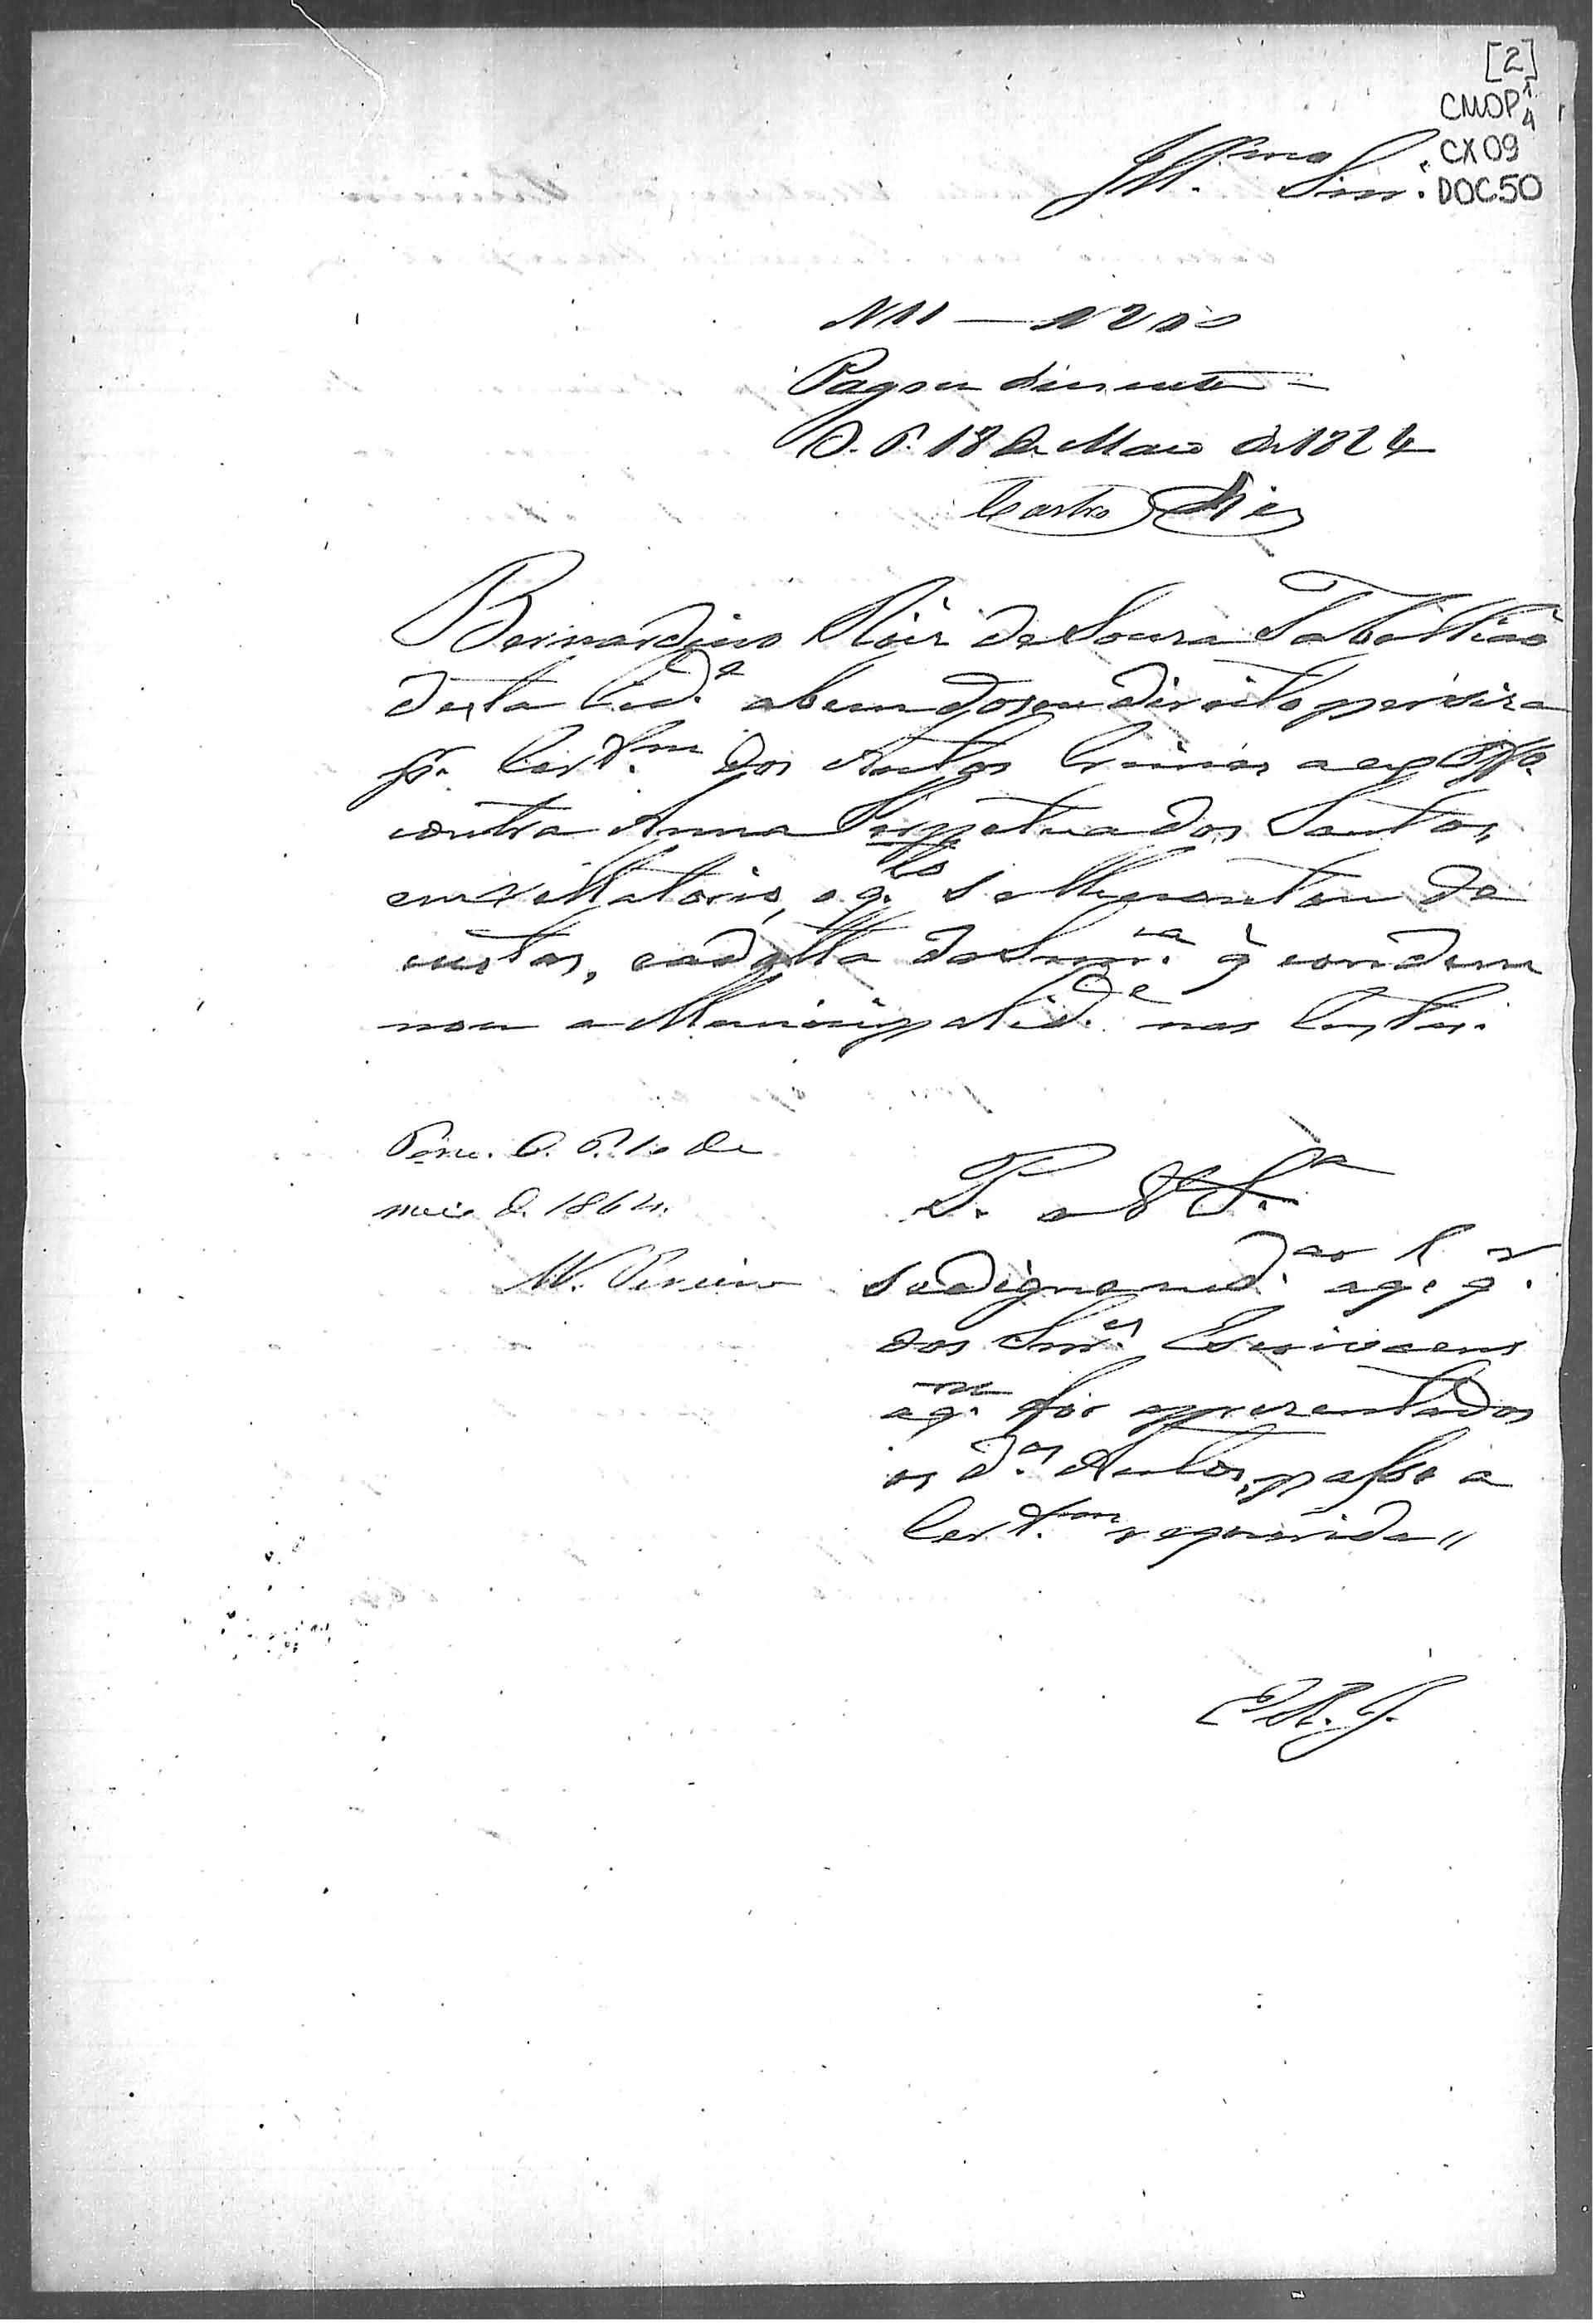 [2]
CMOP 1/4
CX 09
DOC.50
Ill.mo Snr.
N 11 — N 200
Pagou duzentos
O. P. 18 de Maio de 1864
Castro Dias
Bernardino Roiz de Souza Tabelliaõ
desta Cid.e a bem do seu direito percisa
p.r Certd.m dos Autos Crimes
contra Anna Perpetua dos Santos
em relatorio, o q.to se lhe contou de
custas, e a data da Snn.ca q̃ condem
nou a Municipalid.e nas Custas.
O. P. 10 de
maio de 1864.
M. Pereira
P. a V. S.a
se digne md.ar q̃ q.r
dos Snr.es Escrivaens
a q.m for aprezentados
os d.os Autos, passe a
Certd.m requerida"
E. R. J.